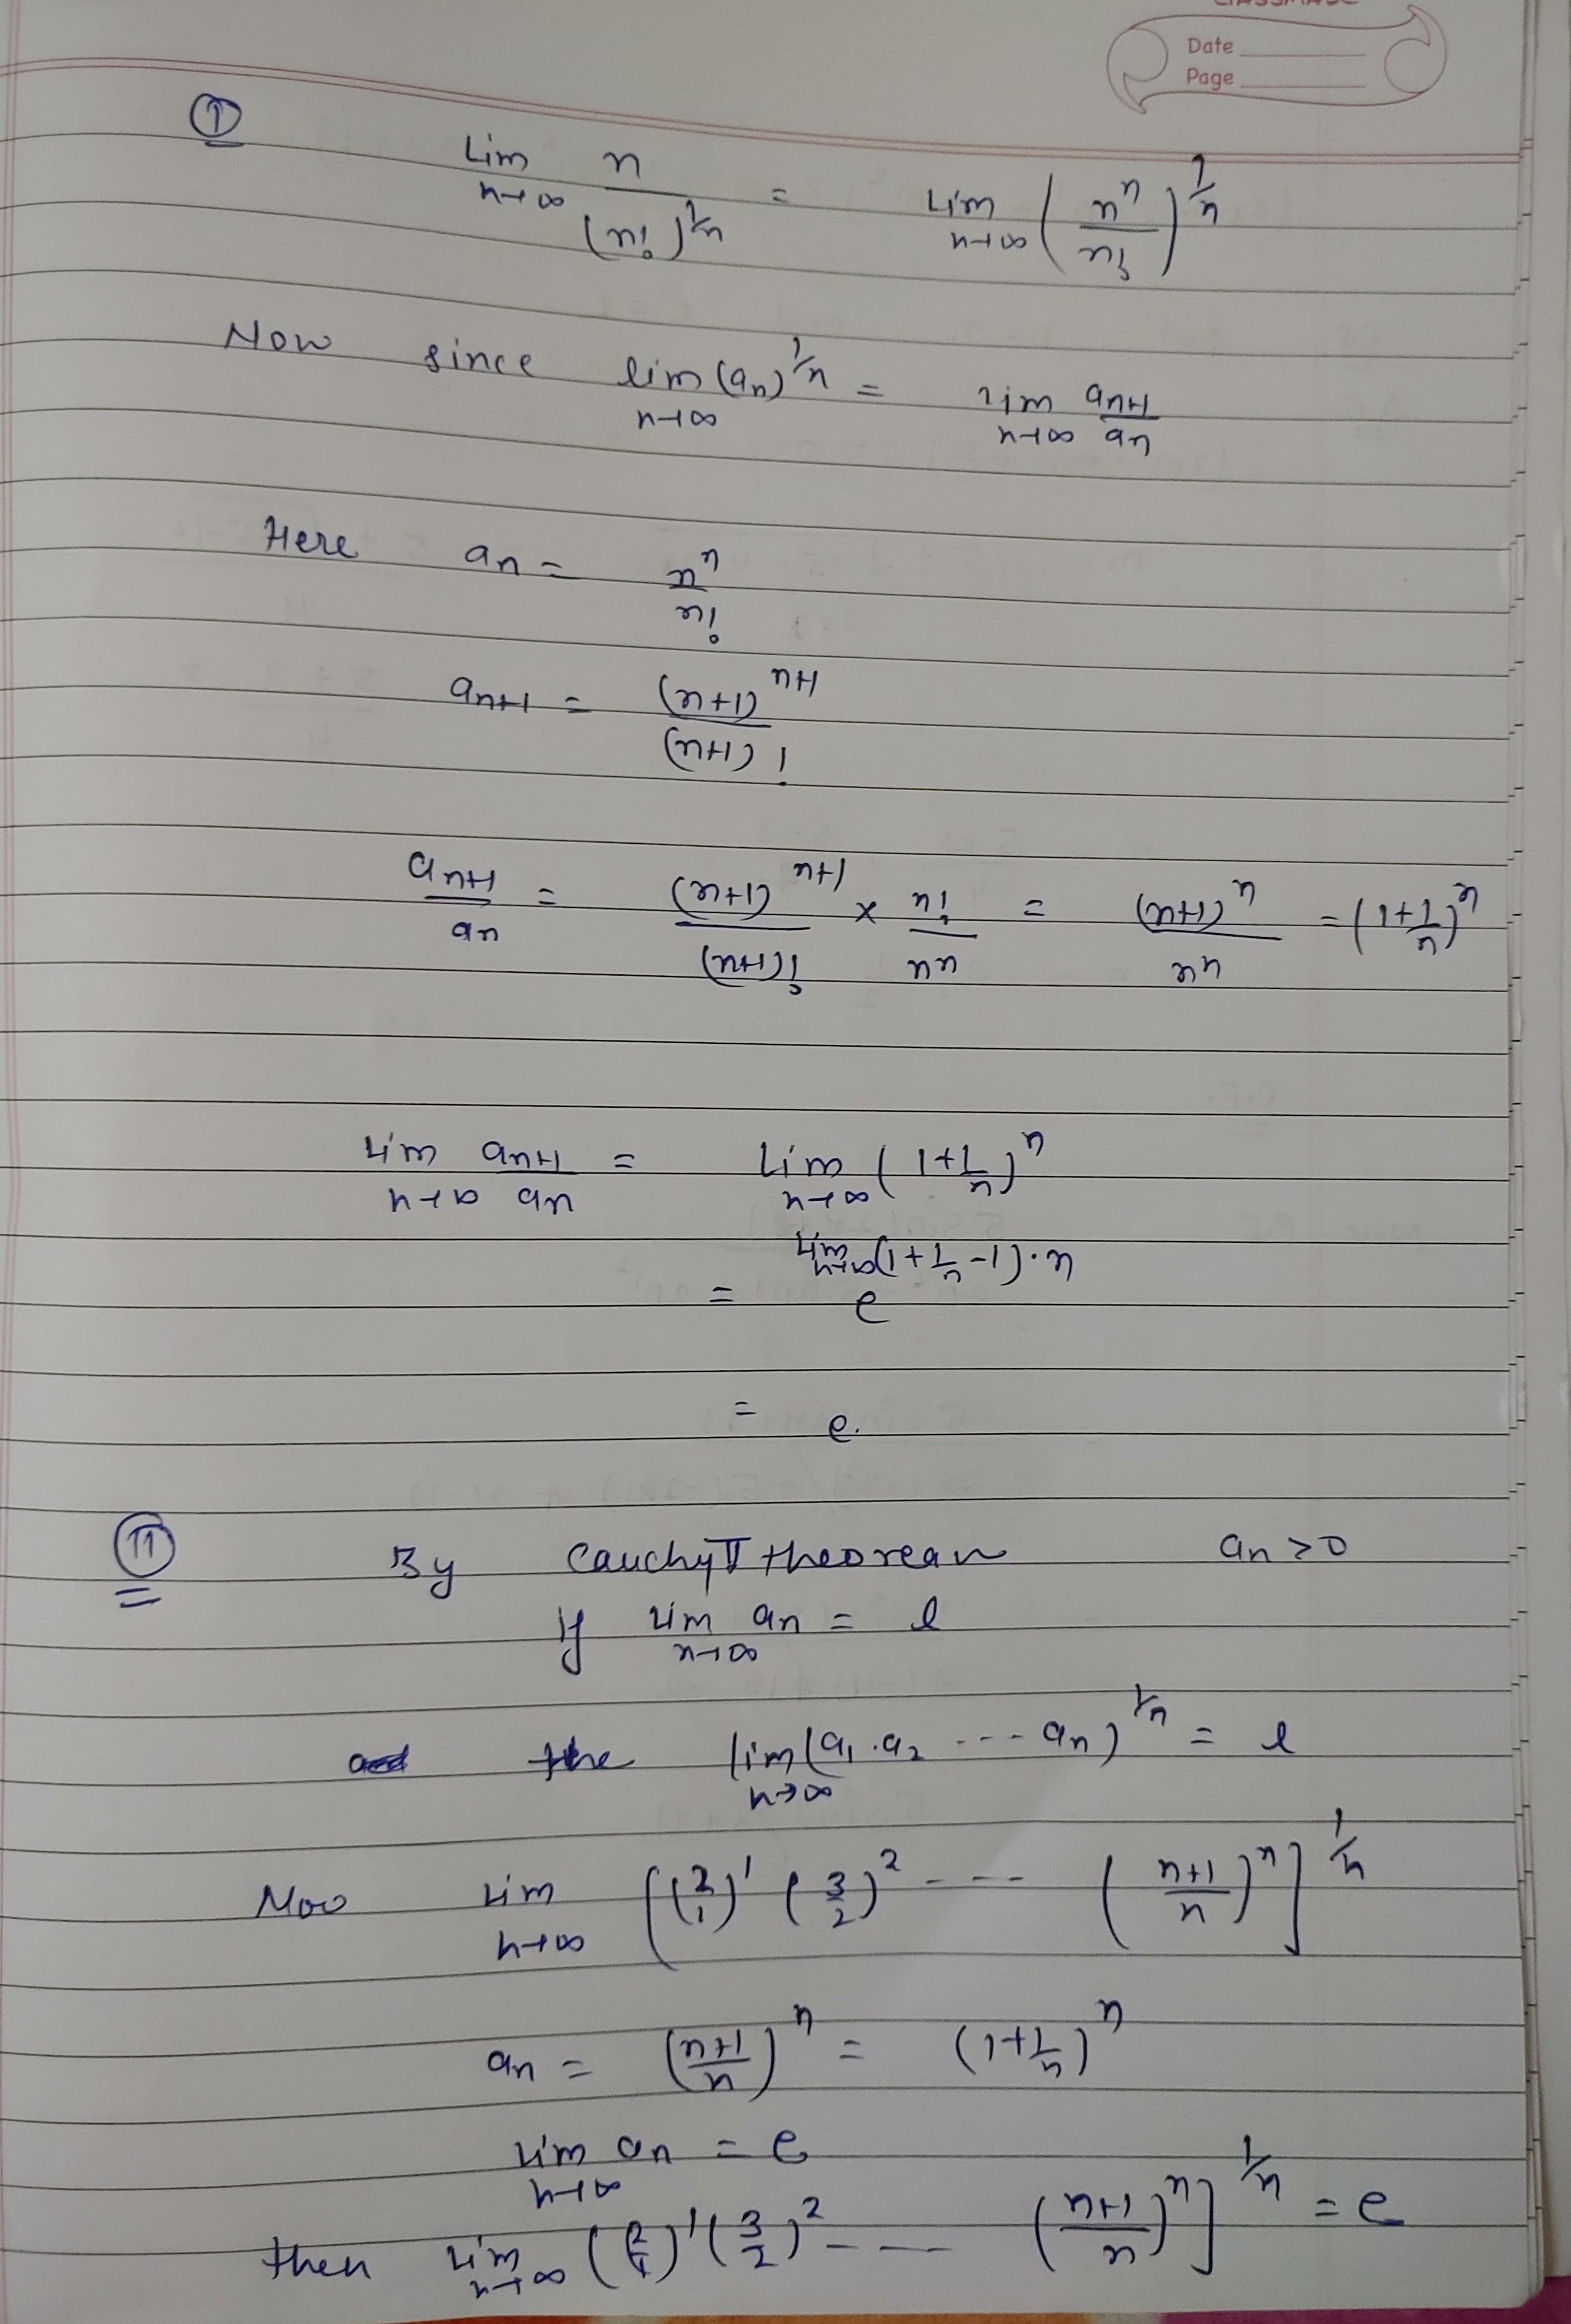 Date
Page
① Lim n→∞ n/(n!)^(1/n) = Lim n→∞ (n^n/n!)^(1/n)
Now since lim n→∞ (an)^(1/n) = lim n→∞ an+1/an
Here an = n^n/n!
an+1 = (n+1)^(n+1)/(n+1)!
an+1/an = (n+1)^(n+1)/(n+1)! × n!/n^n = (n+1)^n/n^n = (1+1/n)^n
Lim n→∞ an+1/an = Lim n→∞ (1+1/n)^n
= e^(Lim n→∞ (1+1/n-1)·n)
= e.
⑪ By Cauchy II theorean an>0
if Lim n→∞ an = l
the lim n→∞ (a1·a2 --- an)^(1/n) = l
Now Lim n→∞ [(2/1)^1 (3/2)^2 --- (n+1/n)^n]^(1/n)
an = (n+1/n)^n = (1+1/n)^n
Lim n→∞ an = e
then Lim n→∞ (2/1)^1 (3/2)^2 --- (n+1/n)^n]^(1/n) = e